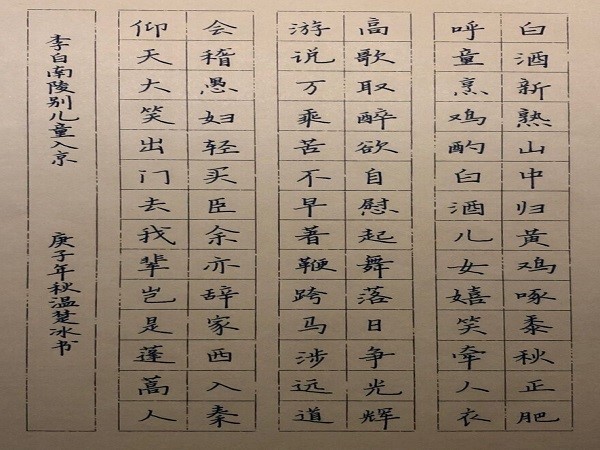 白酒新熟山中归黄鸡啄黍秋正肥
呼童烹鸡酌白酒儿女嬉笑牵人衣
高歌取醉欲自慰起舞落日争光辉
游说万乘苦不早著鞭跨马涉远道
会稽愚妇轻买臣余亦辞家西入秦
仰天大笑出门去我辈岂是蓬蒿人
李白南陵别儿童入京 庚子年秋温楚冰书